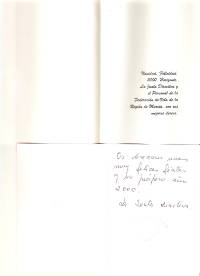 Navidad, Felicidad
2000
La Junta Directiva y
el Personal de la
Federación de Vela de la
Región de Murcia, con sus
mejores deseos.
Os deseamos unas
muy felices fiestas
y un próspero año
2000
La Junta Directiva